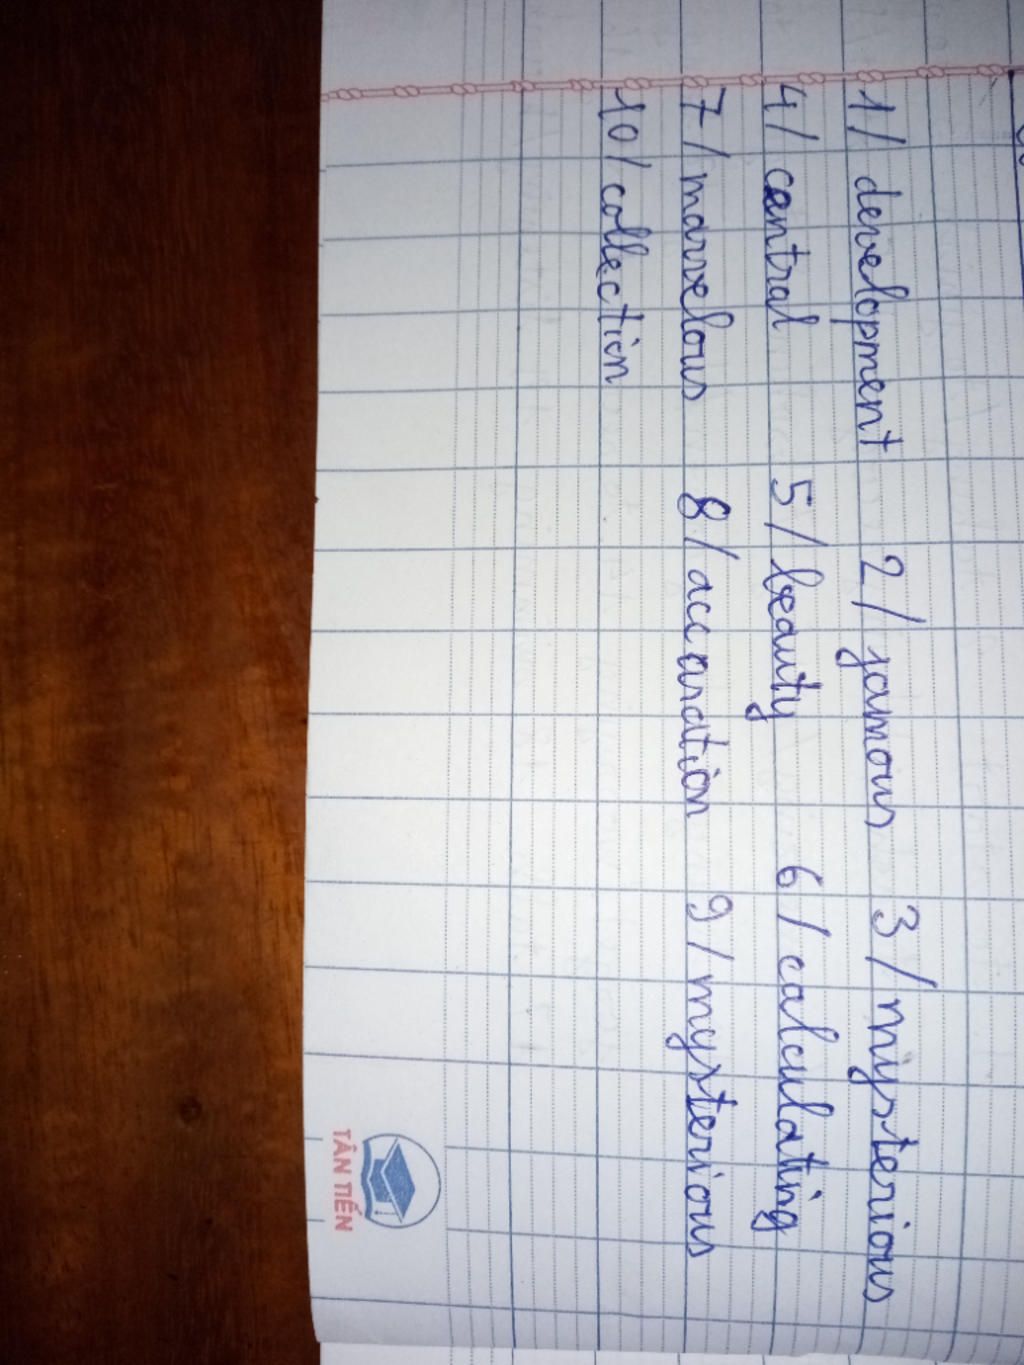 1/ development 2/ famous 3/ mysterious
4/ central 5/ beauty 6/ calculating
7/ marvelous 8/ accaration 9/ mysterious
10/ collection
TÂN TIẾN